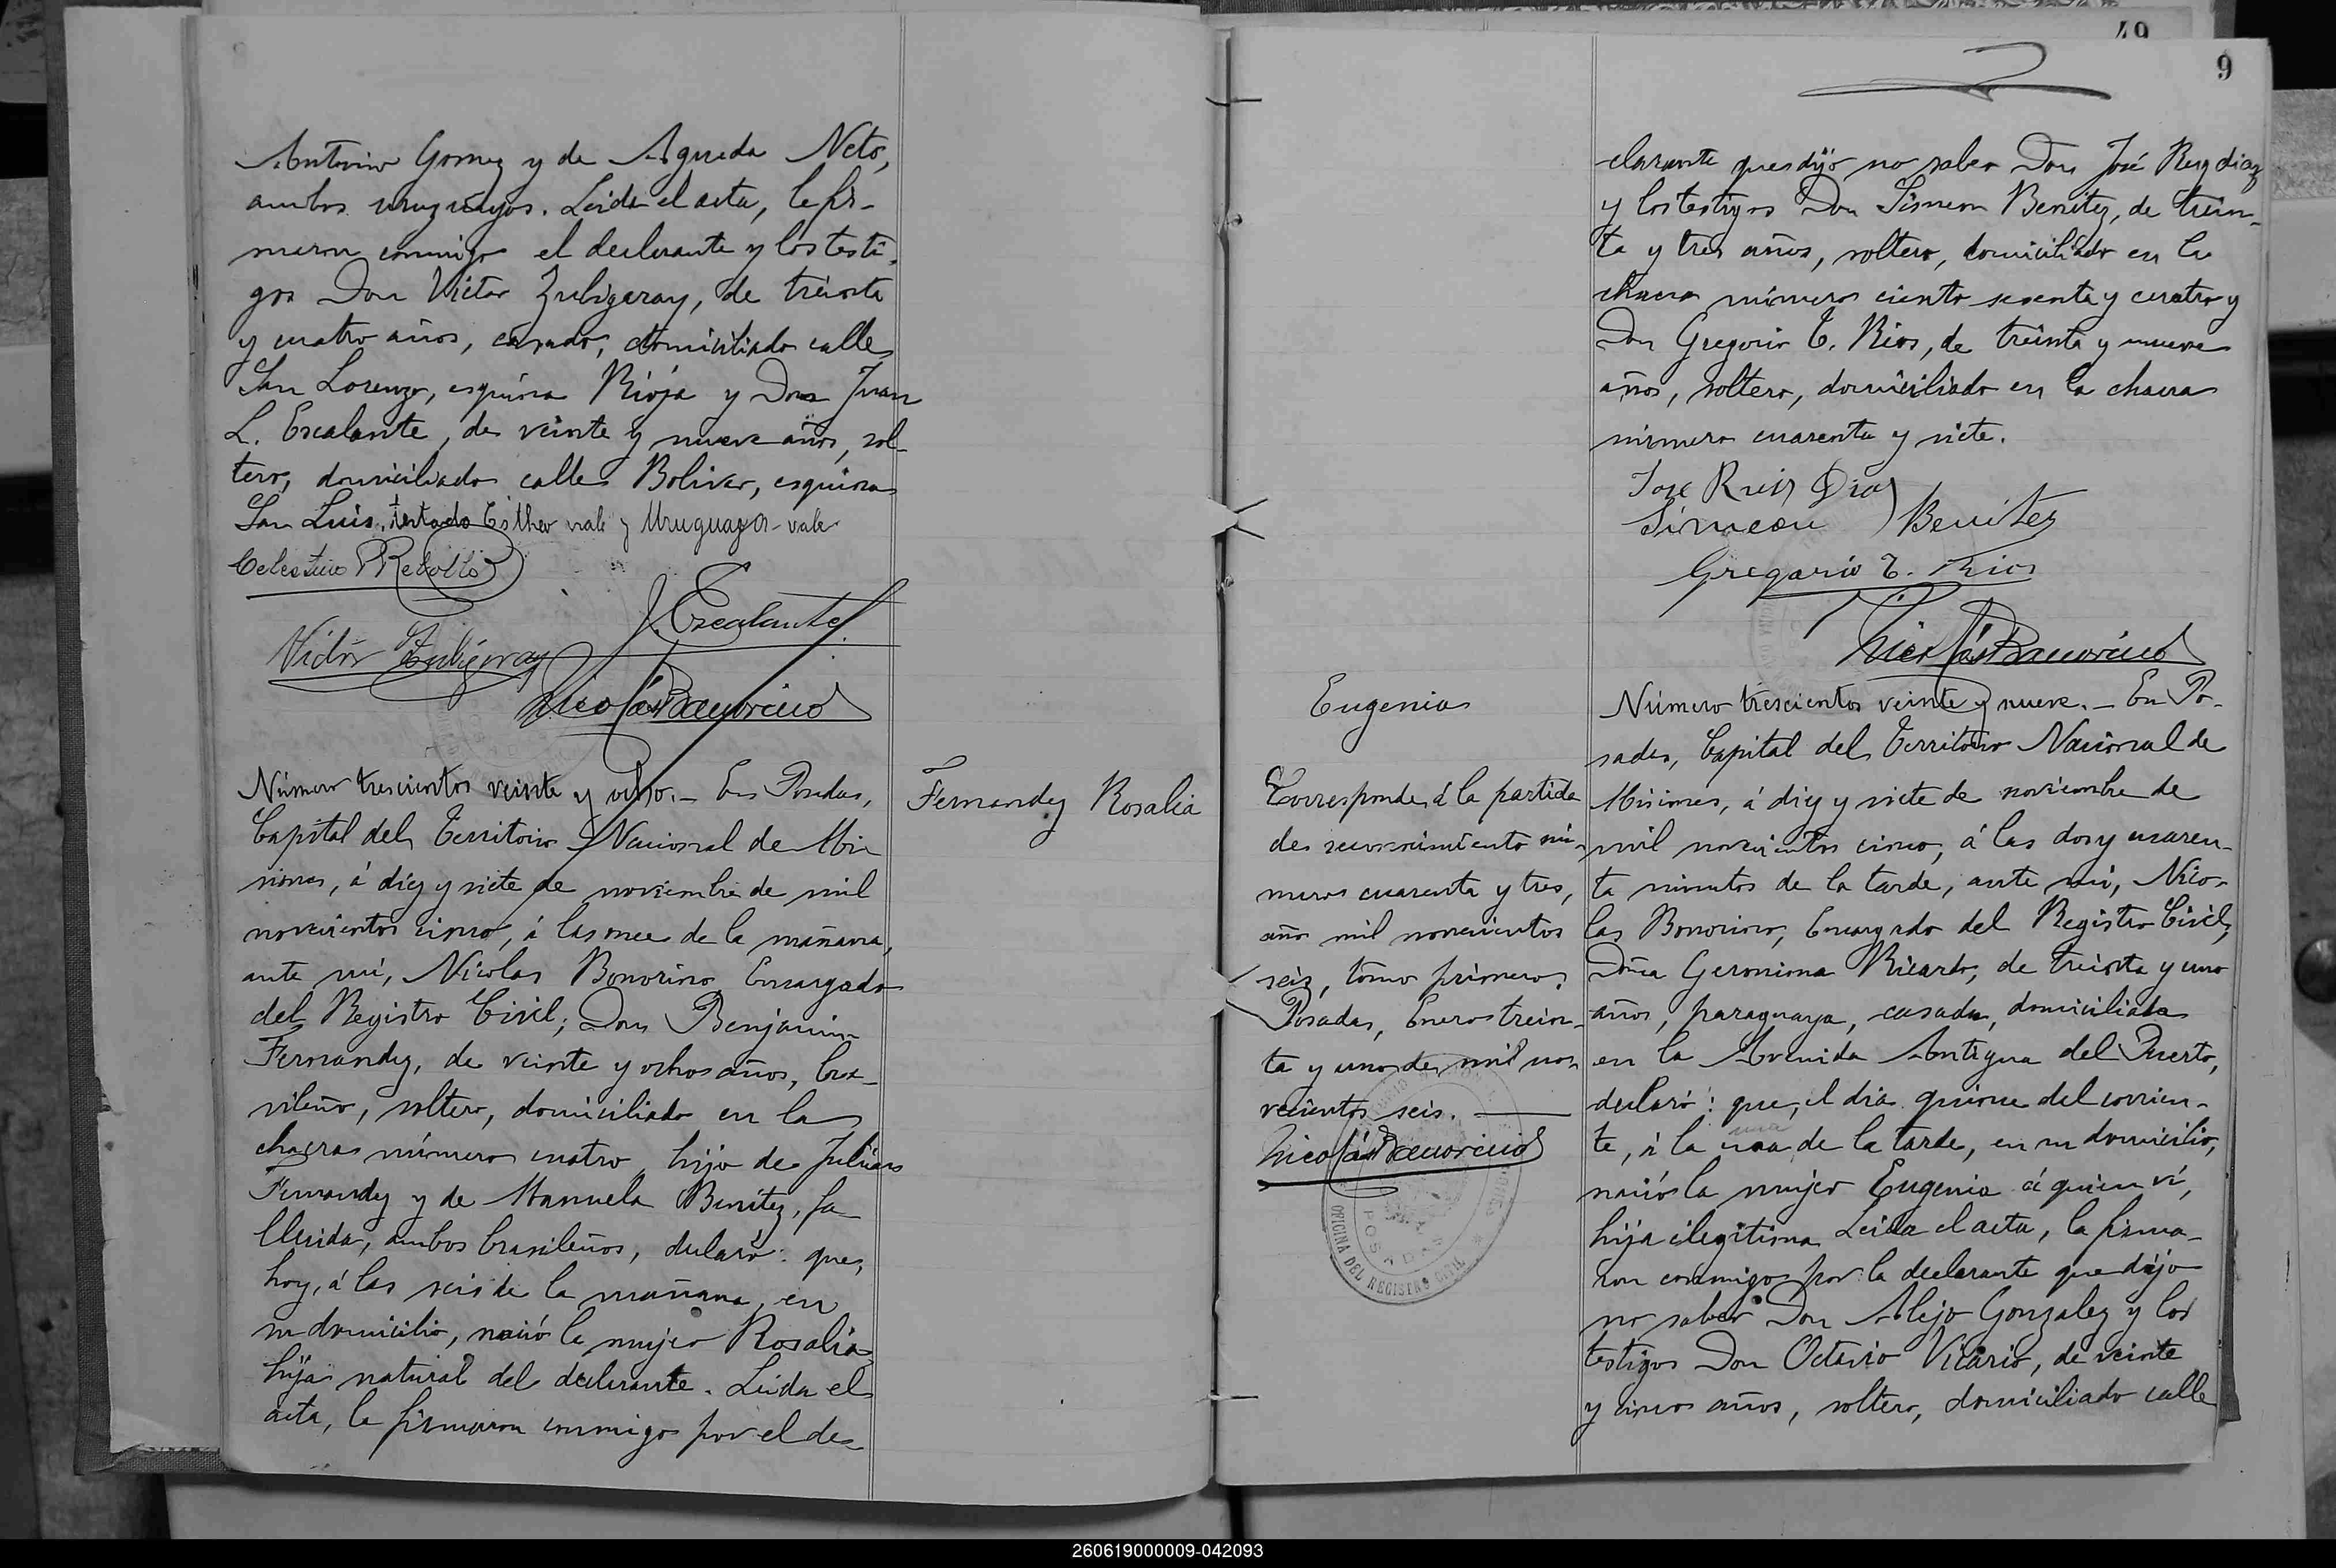 Antonio Gomez y de Agueda Neto,
ambos uruguayos. Leida el acta, la fir-
maron conmigo el declarante y los testi-
gos Don Victor Zubigaray, de treinta
y cuatro años, casado, domiciliado calle
San Lorenzo, esquina Rioja y Don Juan
L. Escalante, de veinte y nueve años, sol-
tero, domiciliado calle Bolivar, esquina
San Luis. testado Esther vale y Uruguaya - vale
Celestino Rebollo
J. Escalante
Victor Zubigaray
Nicolás Bonorino
Número trescientos veinte y ocho. - En Posadas,
Capital del Territorio Nacional de Mi-
siones, á diez y siete de noviembre de mil
novecientos cinco, á las once de la mañana,
ante mí, Nicolas Bonorino, Encargado
del Registro Civil; Don Benjamin
Fernandez, de veinte y ocho años, bra-
sileño, soltero, domiciliado en la
chacra número cuatro, hijo de Julian
Fernandez y de Manuela Benitez, fa-
llecida, ambos brasileños, declaró: que,
hoy, á las seis de la mañana, en
su domicilio, nació la mujer Rosalia,
hija natural del declarante. Leida el
acta, la firmaron conmigo por el de-
Fernandez Rosalia
49
9
clarante que dijo no saber Don José Ruiz diaz
y los testigos Don Simeon Benitez, de trein-
ta y tres años, soltero, domiciliado en la
chacra número ciento sesenta y cuatro y
Don Gregorio T. Rios, de treinta y nueve
años, soltero, domiciliado en la chacra
número cuarenta y siete.
Jose Ruiz Diaz
Simeon Benitez
Gregorio T. Rios
Nicolás Bonorino
Eugenia
Corresponde á la partida
de reconocimiento nú-
mero cuarenta y tres,
año mil novecientos
seis, tomo primero.
Posadas, Enero trein-
ta y uno de mil no-
vecientos seis.
Nicolás Bonorino
POSADAS
OFICINA DEL REGISTRO CIVIL
Número trescientos veinte y nueve. - En Po-
sadas, Capital del Territorio Nacional de
Misiones, á diez y siete de noviembre de
mil novecientos cinco, á las dos y cuaren-
ta minutos de la tarde, ante mí, Nico-
las Bonorino, Encargado del Registro Civil,
Doña Geronima Ricardo, de treinta y uno
años, paraguaya, casada, domiciliada
en la Avenida Antigua del Puerto,
declaró: que, el dia quince del corrien-
te, á la una de la tarde, en su domicilio,
nació la mujer Eugenia á quien ví,
hija ilegitima. Leida el acta, la firma-
ron conmigo por la declarante que dijo
no saber Don Alejo Gonzalez y los
testigos Don Octavio Vicario, de veinte
y cinco años, soltero, domiciliado calle
260619000009-042093